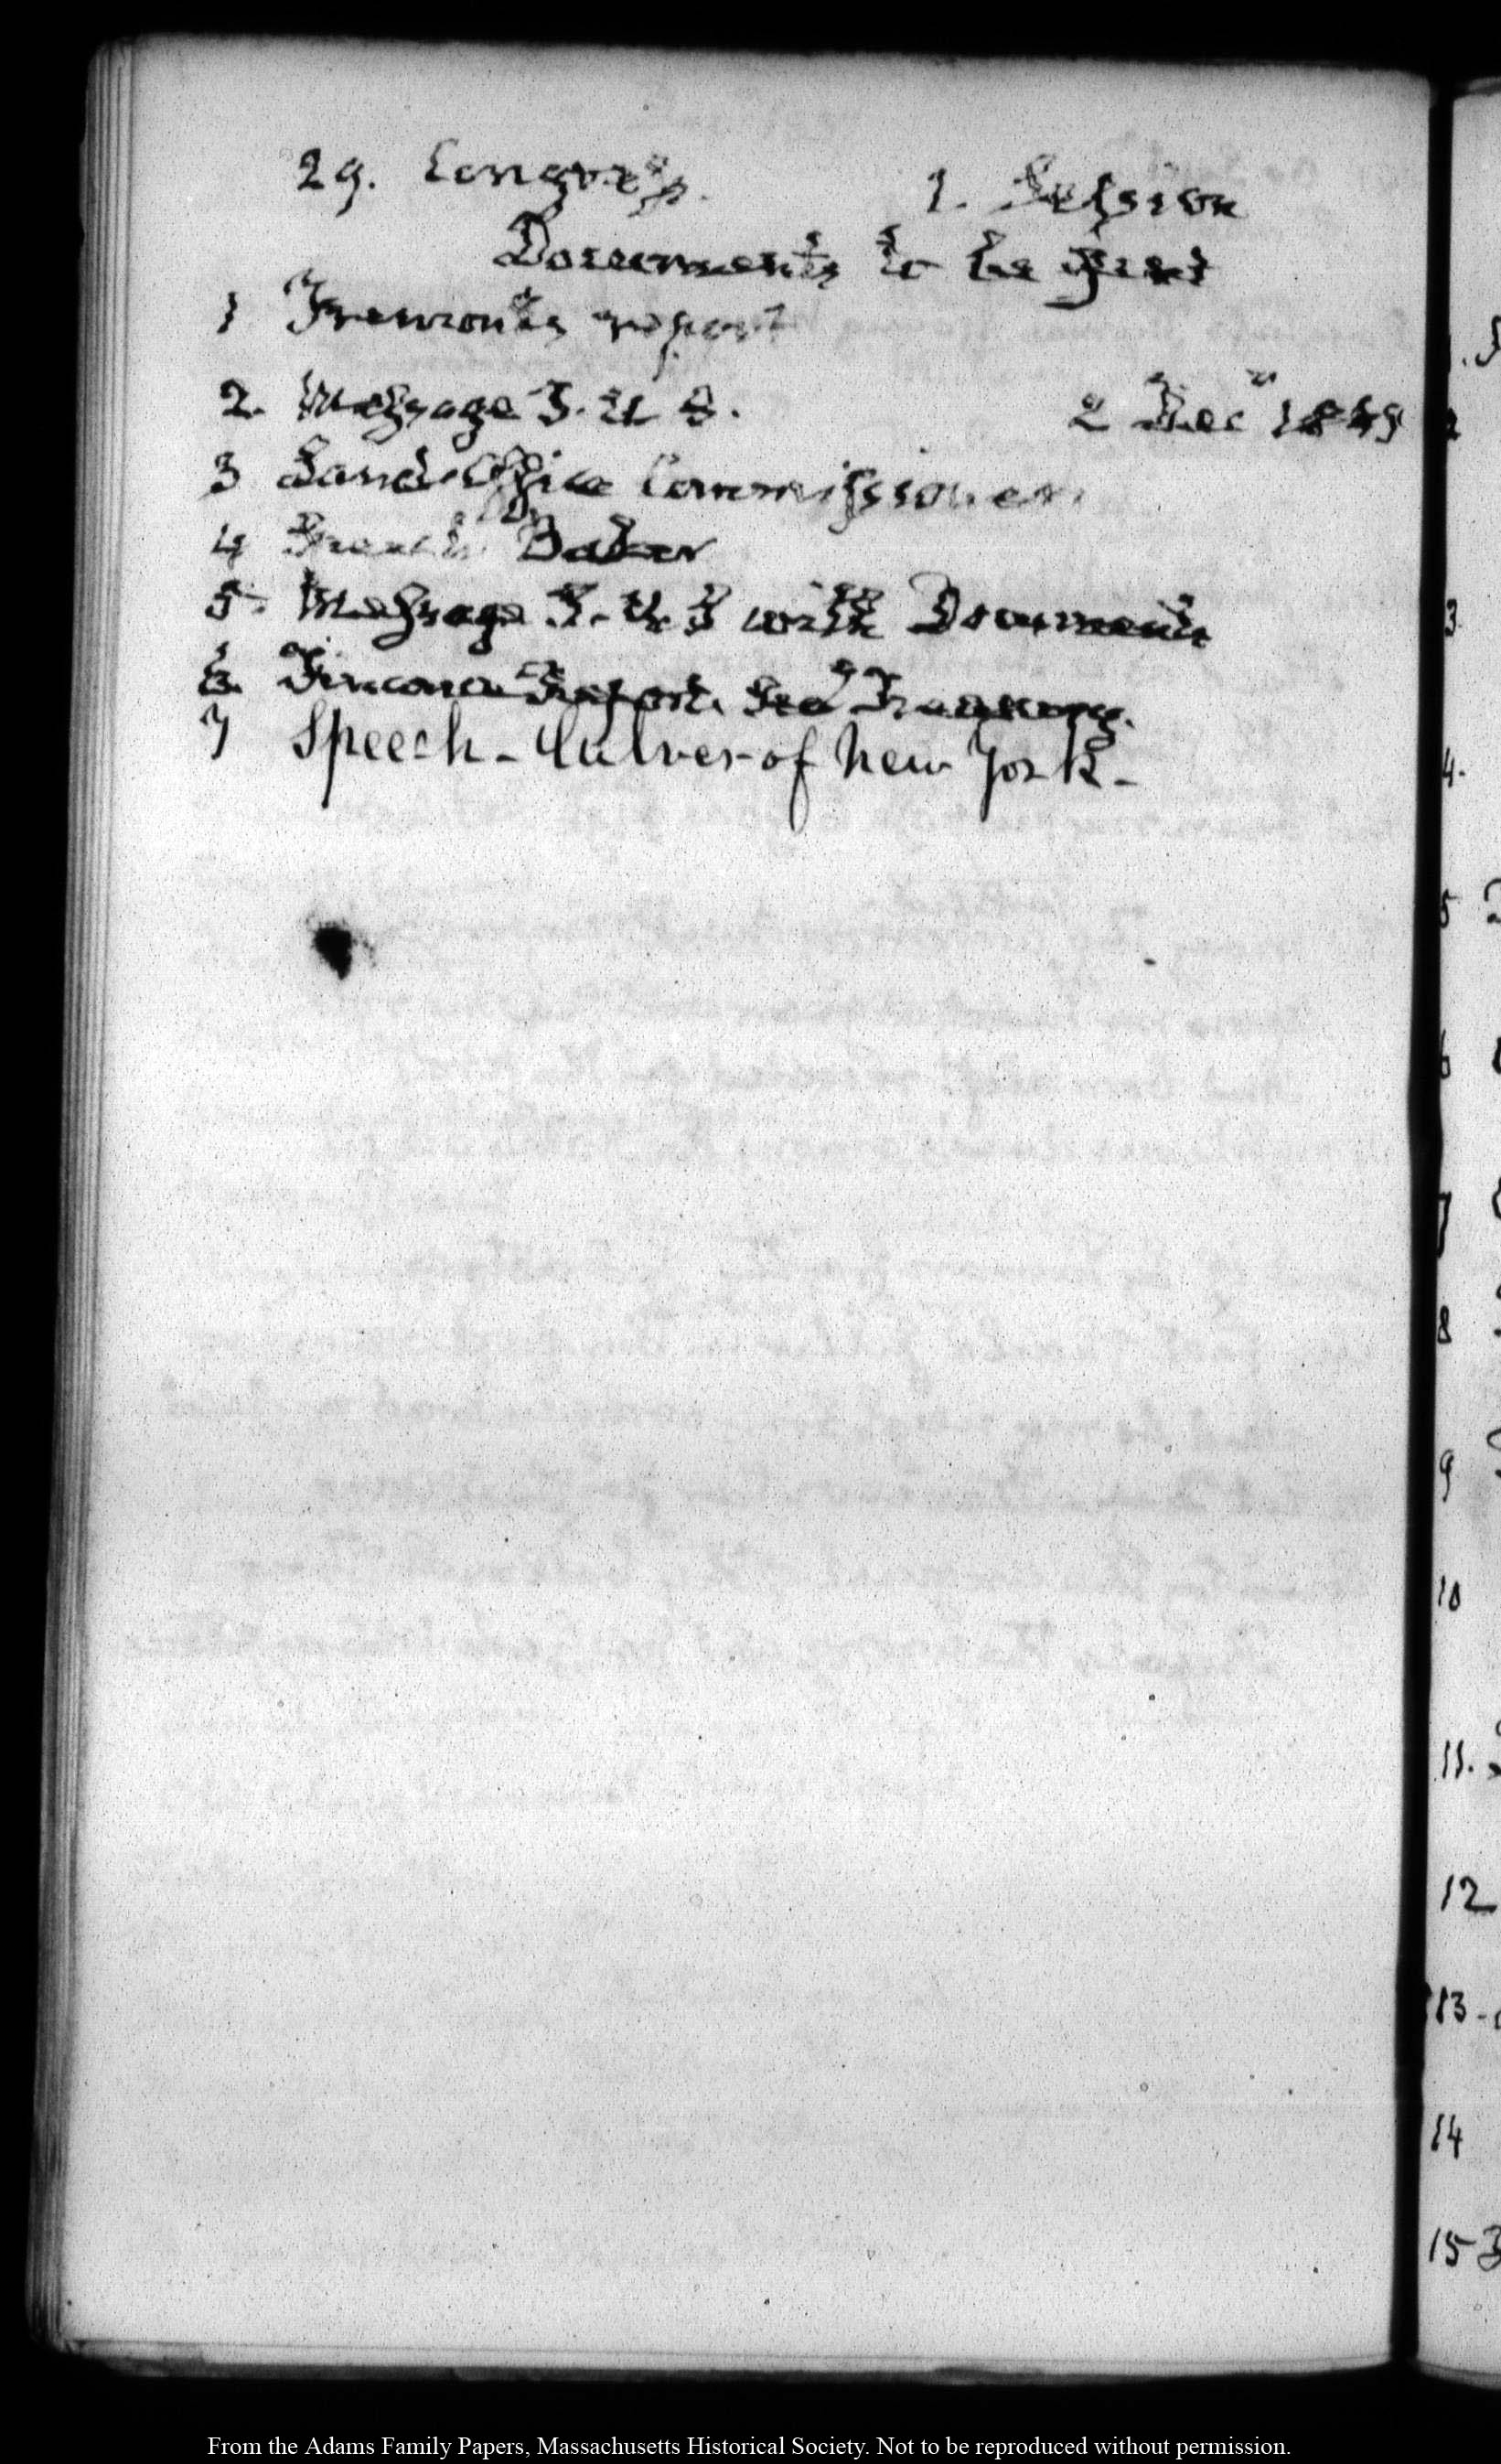 29. Congress. 1. Session
Documents to be sent
1 Fremonts report
2. Message P. U S. 2 Dec 1845
3 Land Office Commissioner
4 French Baker
5. Message P. U S with Documents
6. Finance Report. Sec Treasury.
7 Speech - Culver of New York -
3
4.
5
6
7
8
9
10
11.
12
13 -
14
15
From the Adams Family Papers, Massachusetts Historical Society. Not to be reproduced without permission.